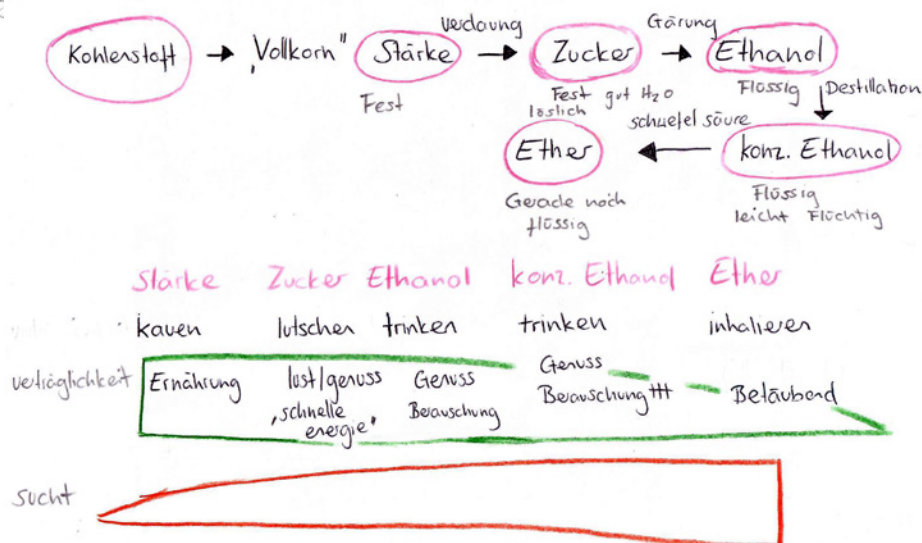 Kohlenstoff → "Vollkorn" Stärke verdauung → Zucker Gärung → Ethanol
Fest
Fest gut H₂O
löslich
Flüssig ↓ Destillation
Ether ← schwefelsäure konz. Ethanol
Gerade noch
flüssig
Flüssig
leicht Flüchtig
Stärke Zucker Ethanol konz. Ethanol Ether
kauen lutschen trinken trinken inhalieren
verträglichkeit
Ernährung
lust/genuss
"schnelle
energie"
Genuss
Berauschung
Genuss
Berauschung +++
Betäubend
sucht